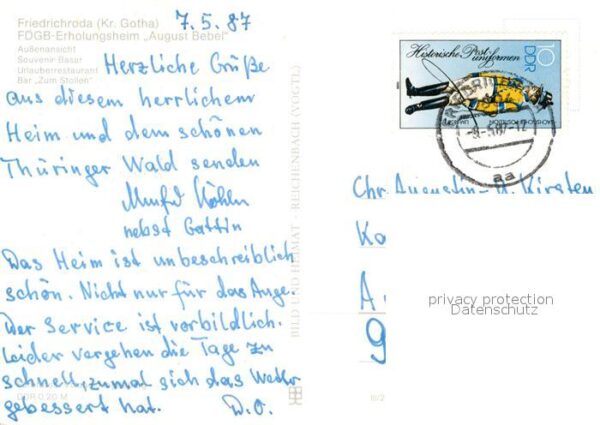 Friedrichroda (Kr. Gotha)
FDGB-Erholungsheim „August Bebel"
Außenansicht
Souvenir-Basar
Urlauberrestaurant
Bar „Zum Stollen"
7.5.87
Herzliche Grüße
aus diesem herrlichem
Heim und dem schönen
Thüringer Wald senden
nebst Gattin
Das Heim ist unbeschreiblich
schön. Nicht nur für das Auge.
Der Service ist vorbildlich.
Leider vergehen die Tage zu
schnell, zumal sich das Wetter
gebessert hat. D.O.
DDR 0,20 M
BILD UND HEIMAT · REICHENBACH (VOGTL)
Historische Post-
uniformen
10
DDR
-8.-5.87-12
aa
Chr. Augustin- Kirsten
Ko
A
9
privacy protection
Datenschutz